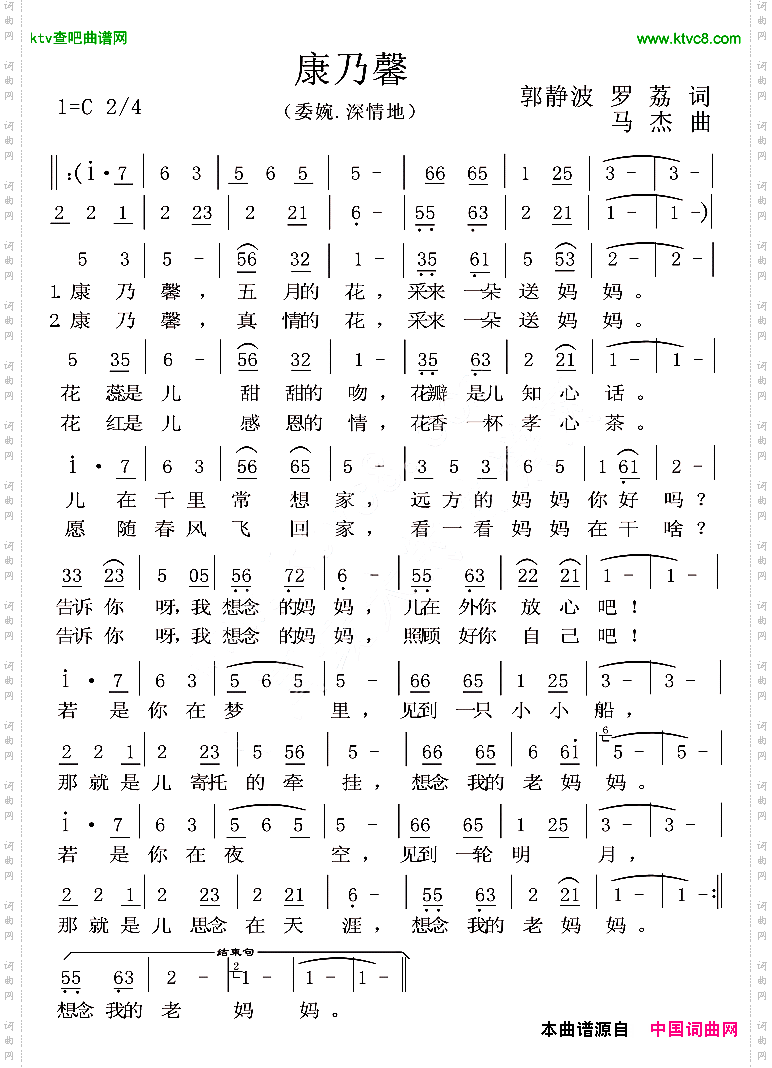 ktv查吧曲谱网 www.ktvc8.com
康乃馨
1=C 2/4 （委婉.深情地） 郭静波 罗荔 词
马杰 曲
‖:(i· 7 | 6 3 | 5 6 5 | 5 - | 66 65 | 1 25 | 3 - | 3 - |
2 2 1 | 2 23 | 2 21 | 6 - | 55 63 | 2 21 | 1 - | 1 -)|
5 3 | 5 - | 56 32 | 1 - | 35 61 | 5 53 | 2 - | 2 - |
1.康乃馨，五月的花，采来一朵送妈妈。
2.康乃馨，真情的花，采来一朵送妈妈。
5 35 | 6 - | 56 32 | 1 - | 35 63 | 2 21 | 1 - | 1 - |
花蕊是儿甜甜的吻，花瓣是儿知心话。
花红是儿感恩的情，花香一杯孝心茶。
i· 7 | 6 3 | 56 65 | 5 - | 3 5 3 | 6 5 | 1 61 | 2 - |
儿在千里常想家，远方的妈妈你好吗？
愿随春风飞回家，看一看妈妈在干啥？
33 23 | 5 05 | 56 72 | 6 - | 55 63 | 22 21 | 1 - | 1 - |
告诉你呀，我想念的妈妈，儿在外你放心吧！
告诉你呀，我想念的妈妈，照顾好你自己吧！
i· 7 | 6 3 | 5 6 5 | 5 - | 66 65 | 1 25 | 3 - | 3 - |
若是你在梦里，见到一只小小船，
2 2 1 | 2 23 | 5 56 | 5 - | 66 65 | 6 6i | 6 5 - | 5 - |
那就是儿寄托的牵挂，想念我的老妈妈。
i· 7 | 6 3 | 5 65 | 5 - | 66 65 | 1 25 | 3 - | 3 - |
若是你在夜空，见到一轮明月，
2 2 1 | 2 23 | 2 21 | 6 - | 55 63 | 2 21 | 1 - | 1 - :‖
那就是儿思念在天涯，想念我的老妈妈。
结束句
55 63 | 2 - | 2 1 - | 1 - | 1 - ‖
想念我的老妈妈。
本曲谱源自 中国词曲网